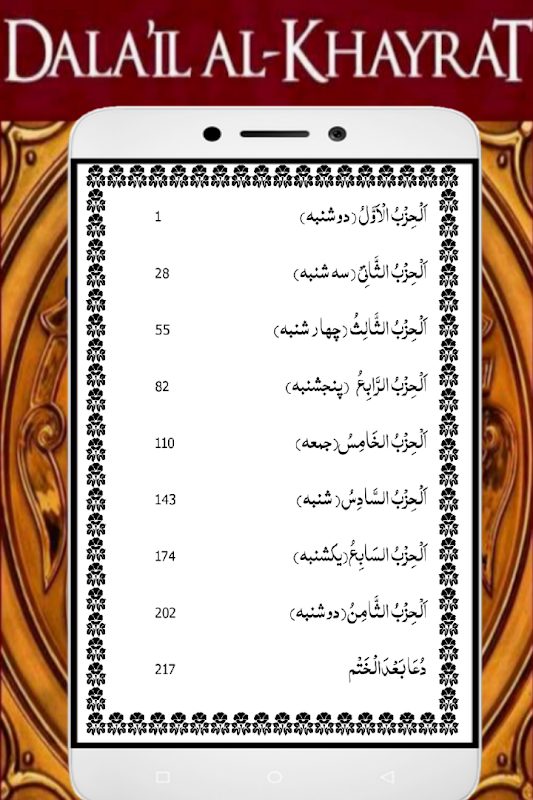 DALA'IL AL-KHAYRAT
اَلْحِزْبُ الْاَوَّلُ (دوشنبه) 1
اَلْحِزْبُ الثَّانِیْ (سه شنبه) 28
اَلْحِزْبُ الثَّالِثُ (چهار شنبه) 55
اَلْحِزْبُ الرَّابِعُ (پنجشنبه) 82
اَلْحِزْبُ الخَامِسُ (جمعه) 110
اَلْحِزْبُ السَّادِسُ (شنبه) 143
اَلْحِزْبُ السَابِعُ (یکشنبه) 174
اَلْحِزْبُ الثَّامِنُ (دوشنبه) 202
دُعَا بَعْدَ الْخَتْم 217